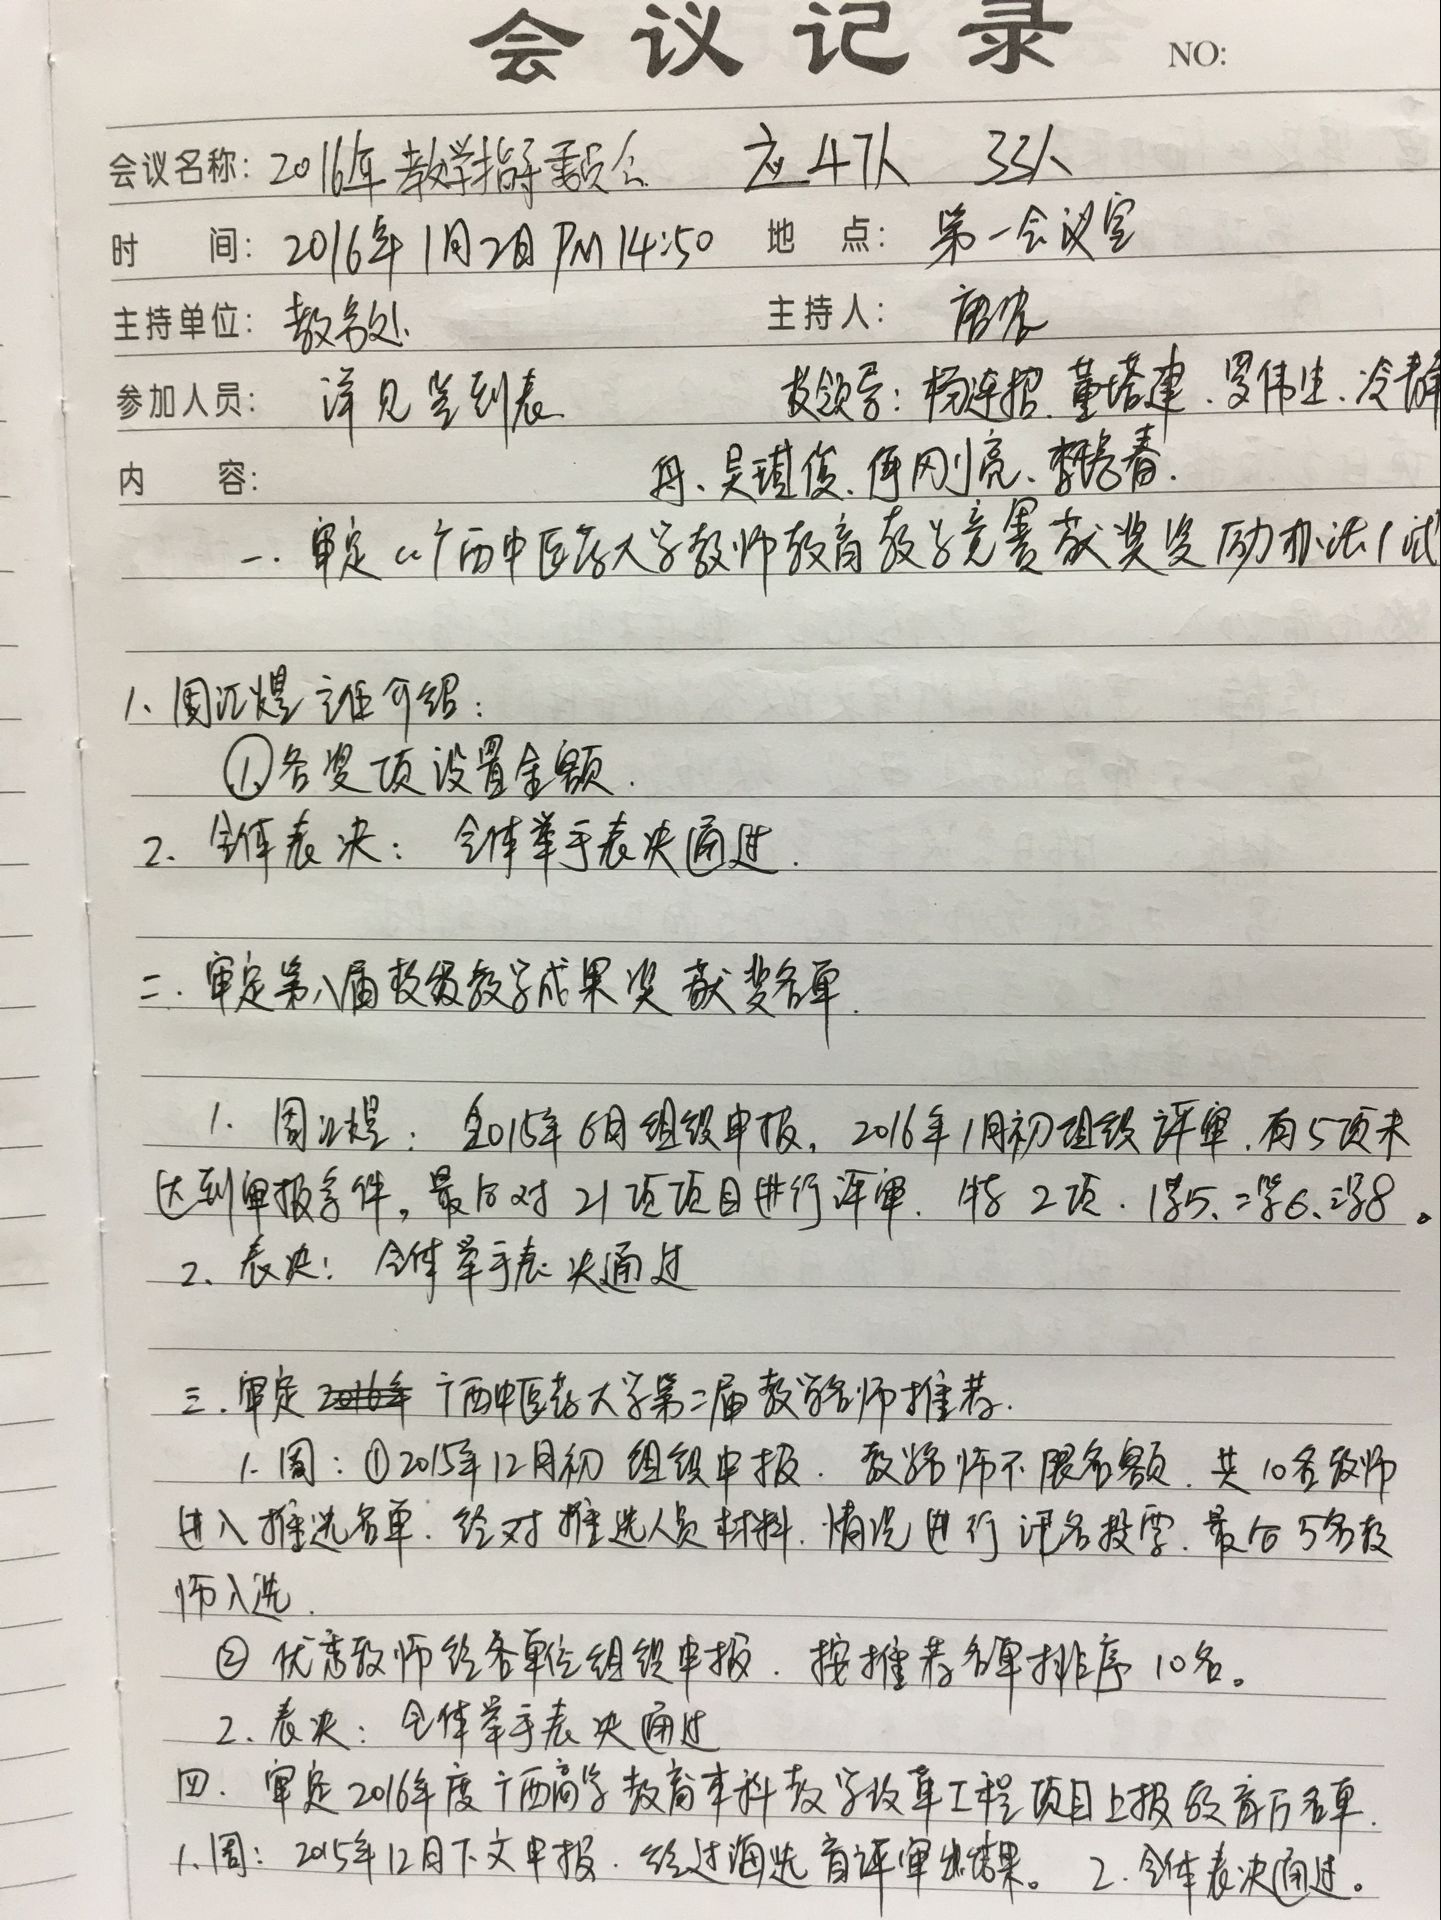 会议记录 NO:
会议名称: 2016年教学指导委员会 应47人 33人
时 间: 2016年1月2日 PM 14:50 地 点: 第一会议室
主持单位: 教务处 主持人: 唐
参加人员: 详见签到表 校领导: 杨连招、董塔建、罗伟生、冷静
内 容: 冉、吴琪俊、何刚亮、李培春.
一、审定“广西中医药大学教师教育教学竞赛获奖奖励办法(试
1、周江煜主任介绍:
①各奖项设置金额.
2. 全体表决: 全体举手表决通过.
二. 审定第八届校级教学成果奖获奖名单.
1. 周江煜: 2015年6月组织申报, 2016年1月初组织评审. 有5项未
达到申报条件, 最后对21项项目进行评审. 特2项. 1等5、二等6、三等8。
2、表决: 全体举手表决通过
三. 审定 2016年 广西中医药大学第二届教学名师推荐.
1. 周: ①2015年12月初 组织申报. 教学名师不限名额. 共10名教师
进入推选名单. 经对推选人员材料. 情况进行记名投票. 最后5名教
师入选.
② 优秀教师经各单位组织申报. 按推荐名单排序10名。
2. 表决: 全体举手表决通过
四. 审定2016年度广西高等教育本科教学改革工程项目上报教育厅名单.
1. 周: 2015年12月下文申报. 经过海选盲评审出结果。 2. 全体表决通过。